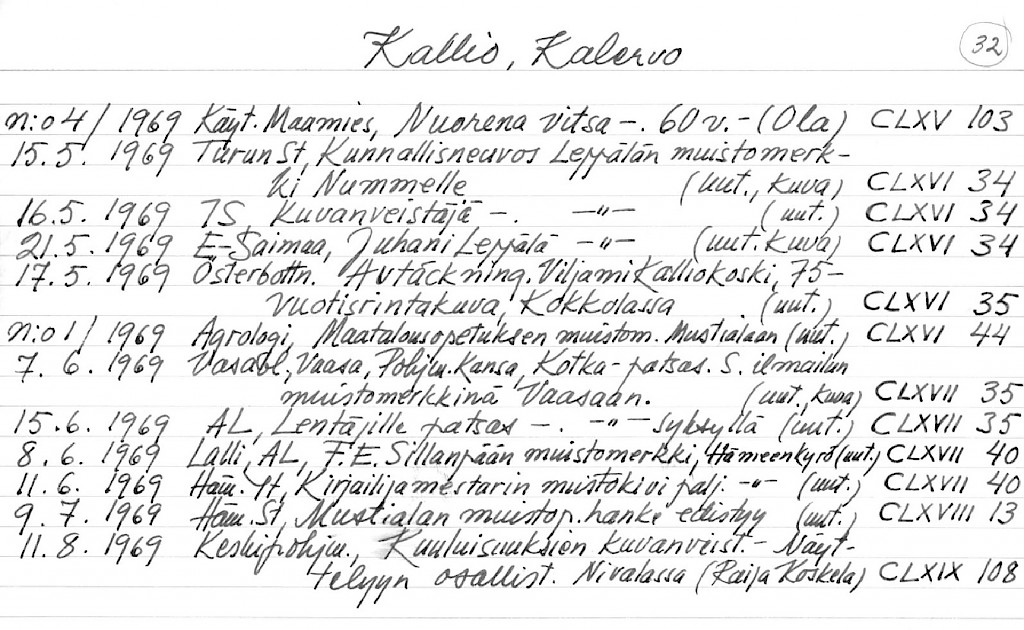 Kallio, Kalervo
32
n:o 4/ 1969 Käyt. Maamies, Nuorena vitsa -. 60 v. - (Ola) CLXV 103
15.5. 1969 Turun St, Kunnallisneuvos Leppälän muistomerk-
ki Nummelle (uut., kuva) CLXVI 34
16.5. 1969 TS Kuvanveistäjä -. -"- (uut.) CLXVI 34
21.5. 1969 E-Saimaa, Juhani Leppälä -"- (uut. kuva) CLXVI 34
17.5. 1969 Österbottn. Avtäckning. Viljami Kalliokoski, 75-
vuotisrintakuva, Kokkolassa (uut.) CLXVI 35
n:o 1/ 1969 Agrologi, Maatalousopetuksen muistom. Mustialaan (uut.) CLXVI 44
7. 6. 1969 Vasabl., Vaasa, Pohjm. Kansa, Kotka-patsas. S. ilmailun
muistomerkkinä Vaasaan. (uut., kuva) CLXVII 35
15.6. 1969 AL, Lentäjille patsas -. -"- syksyllä (uut.) CLXVII 35
8.6. 1969 Lalli, AL, F.E. Sillanpään muistomerkki, Hämeenkyrö (uut.) CLXVII 40
11.6. 1969 Häm. Yt, Kirjailijamestarin muistokivi palj. -"- (uut.) CLXVII 40
9.7. 1969 Häm. St, Mustialan muistop. hanke edistyy (uut.) CLXVIII 13
11.8. 1969 Keskipohjm., Kuuluisuuksien kuvanveist. - Näyt-
telyyn osallist. Nivalassa (Raija Koskela) CLXIX 108